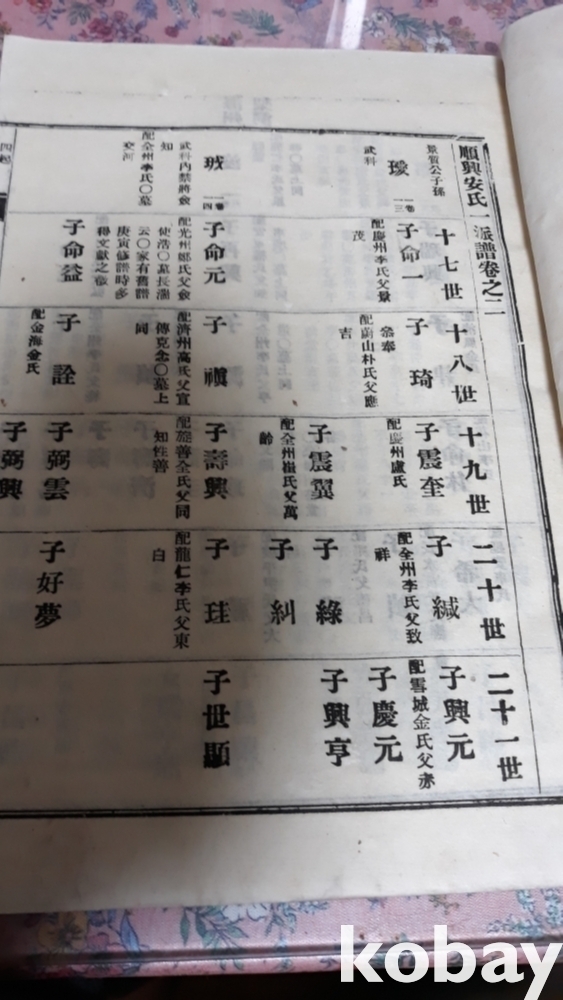 順興安氏一派譜卷之二
景質公子孫
璦
一卷
一三
武科
珹
一卷
一四
武科內禁將僉
知
配全州李氏〇墓
交河
十七世
子命一
配慶州李氏父景
茂
子命元
配光州鄭氏父僉
使浩〇墓長湍
云〇家有舊譜
庚寅修譜時多
得文獻之徵
子命益
十八世
子琦
參奉
配蔚山朴氏父應
吉
子禛
配濟州高氏父宣
傳克念〇墓上
同
子詮
配金海金氏
十九世
子震奎
配慶州盧氏
子震翼
配全州崔氏父萬
齡
子壽興
配旌善全氏父同
知性善
子弼雲
子弼興
二十世
子緘
配全州李氏父致
祥
子綠
子糾
子珪
配龍仁李氏父東
白
子好夢
二十一世
子興元
配雪城金氏父赤
子慶元
子興亨
子世顯
四起
kobay